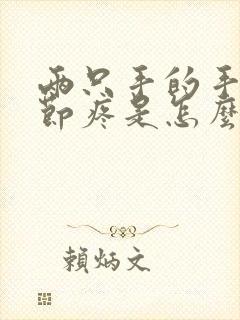 兩只手的手
節疼是怎麼
賴炳文